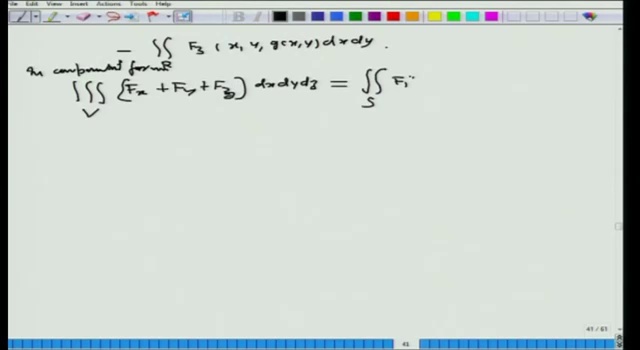 Edit View Insert Actions Tools Help
B I
- ∬ F₃ (x, y, g(x,y) dx dy.
In component form R
∭ {Fx + Fy + Fz} dx dy dz = ∬ F₁
V S
41 / 61
41